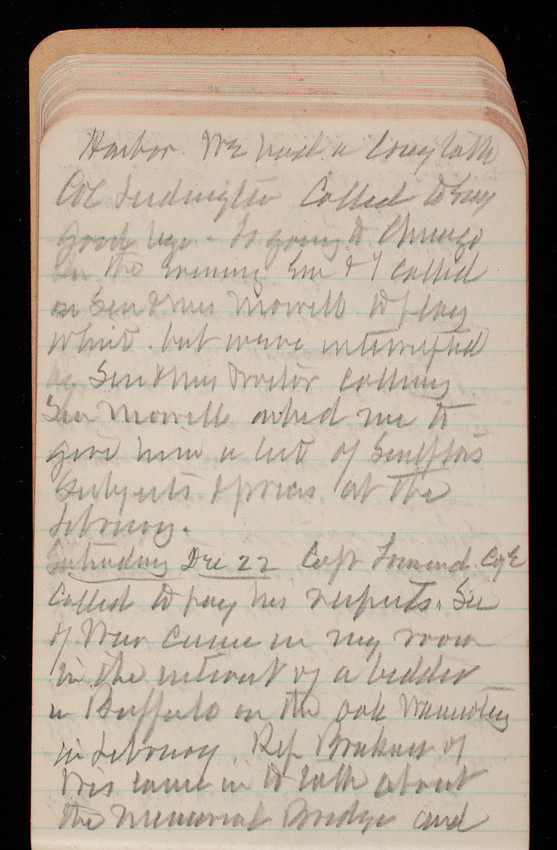 Harbor. We had a long talk
Col Ludington Called to say
good bye - Is going to Chicago
In the evening Em & I called
on Sen & Mrs Morrill to play
whist. but were interrupted
by Sen & Mrs Proctor calling
Sen Morrill asked me to
give him a list of Sculptors
Subjects & prices at the
Library.
Saturday Dec 22 Capt C of E
Called to pay his respects. Sec
of War came in my room
in the interest of a bidder
in Buffalo on the oak
in Library. Rep of
Wis came in to talk about
the Memorial Bridge and